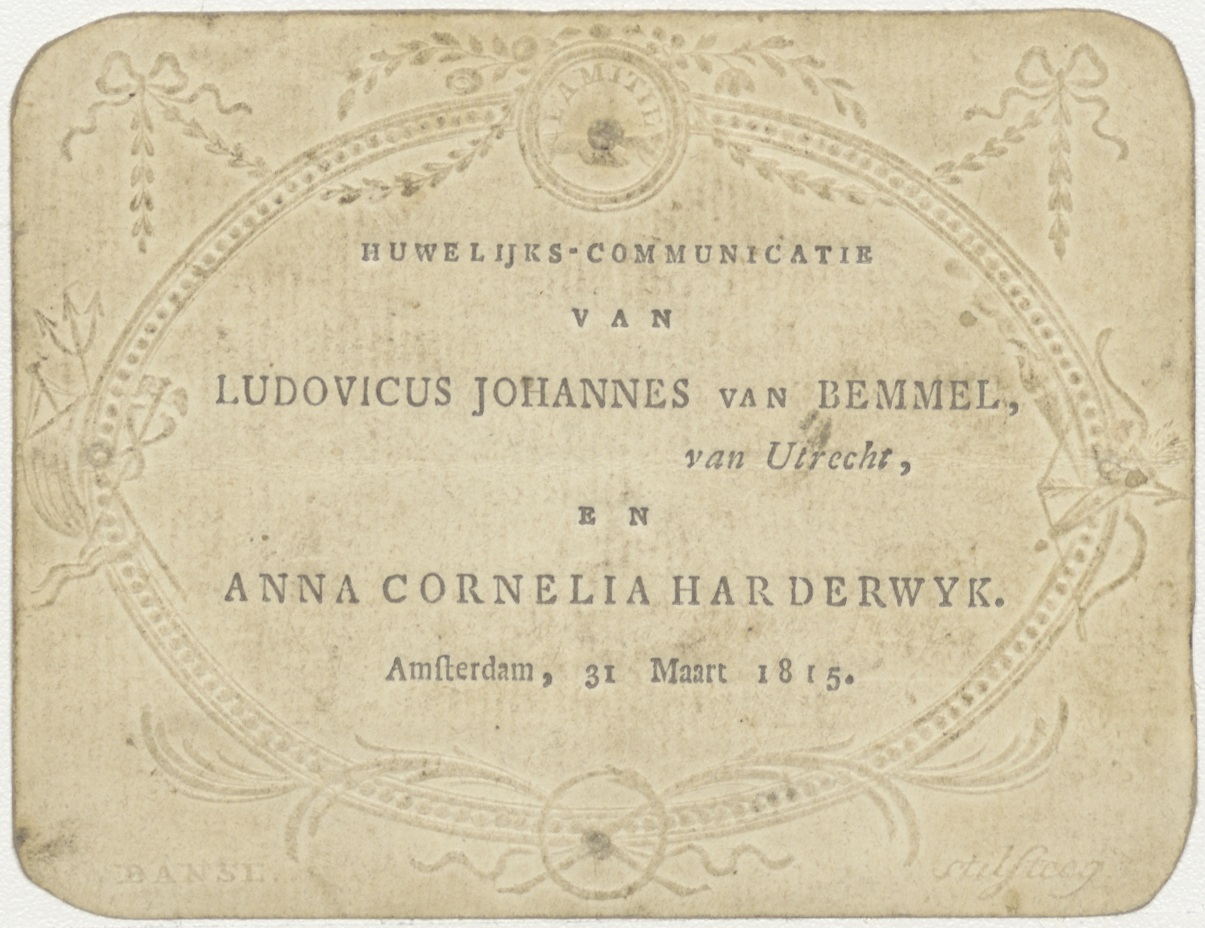 L'AMITIE
HUWELIJKS-COMMUNICATIE
VAN
LUDOVICUS JOHANNES VAN BEMMEL,
van Utrecht,
EN
ANNA CORNELIA HARDERWYK.
Amſterdam, 31 Maart 1815.
BANSE.
stilſteeg